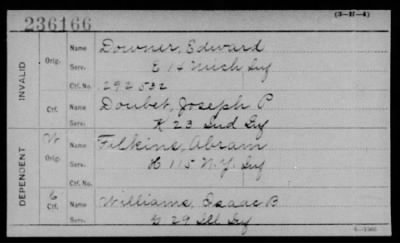 (3-H-4)
236166
INVALID
Orig. Name Downer, Edward
Serv. E 14 Mich Inf
Ctf. No. 292532
Ctf. Name Doubet, Joseph P
Serv. K 23 Ind Inf
DEPENDENT
W Orig. Name Filkins, Abram
Serv. H 115 N.Y. Inf
Ctf. No.
C Ctf. Name Williams, Isaac B
Serv. G 29 Ill Inf